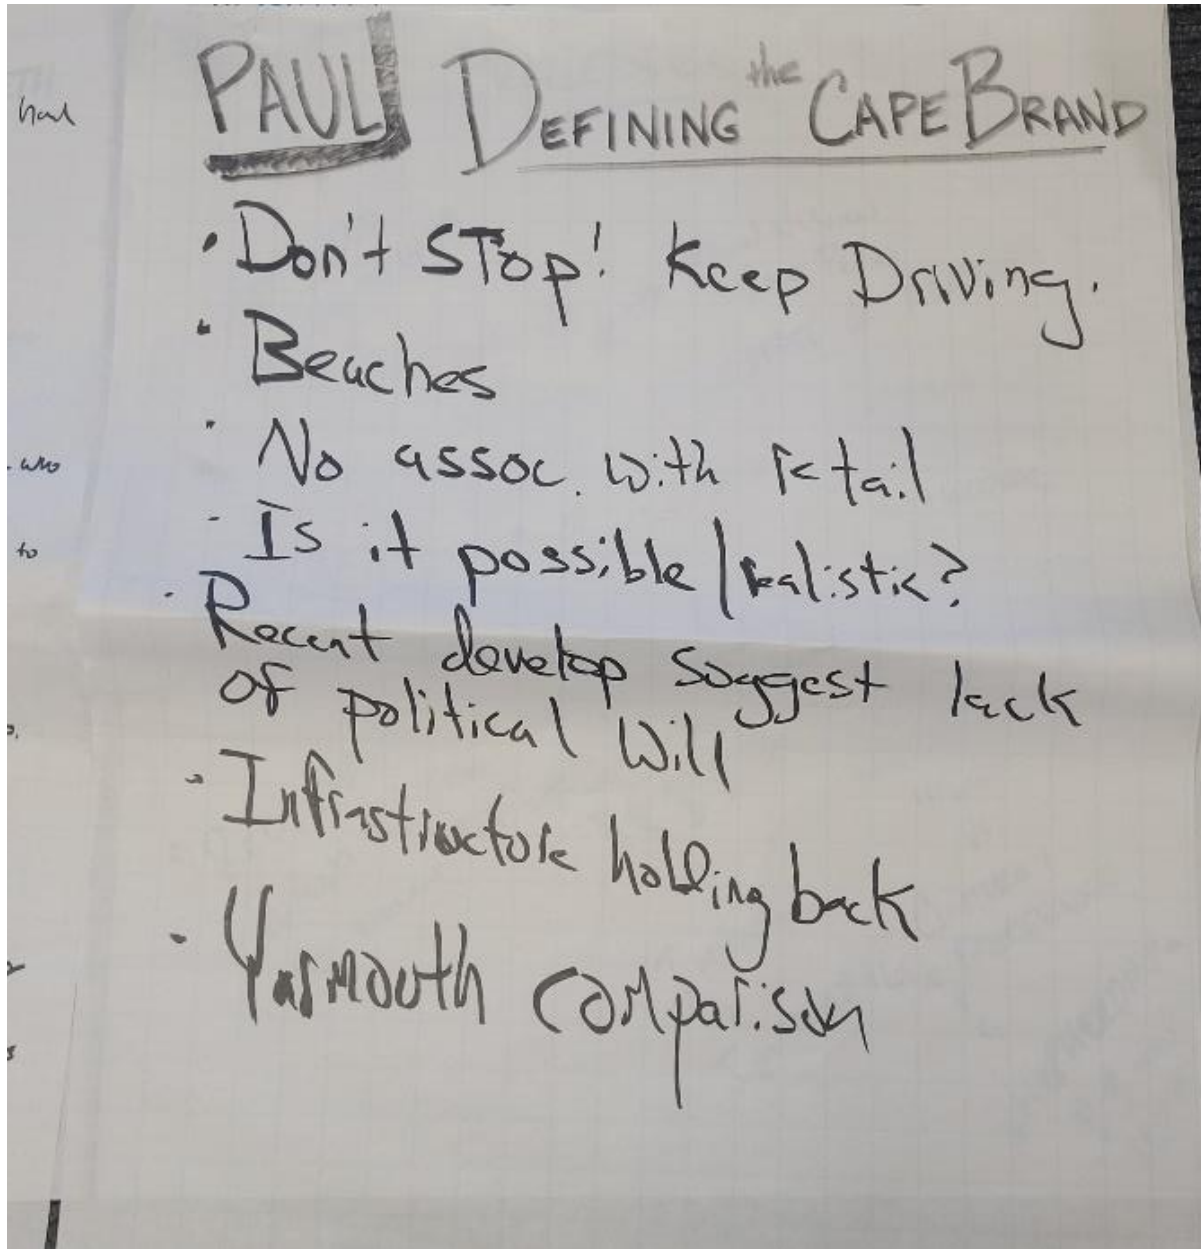 PAUL DEFINING the CAPE BRAND
• Don't STop! Keep Driving.
• Beaches
• No assoc. with retail
- Is it possible/realistic?
• Recent develop suggest lack
of political Will
• Infrastructure holding back
• Yarmouth comparison
had
who
to